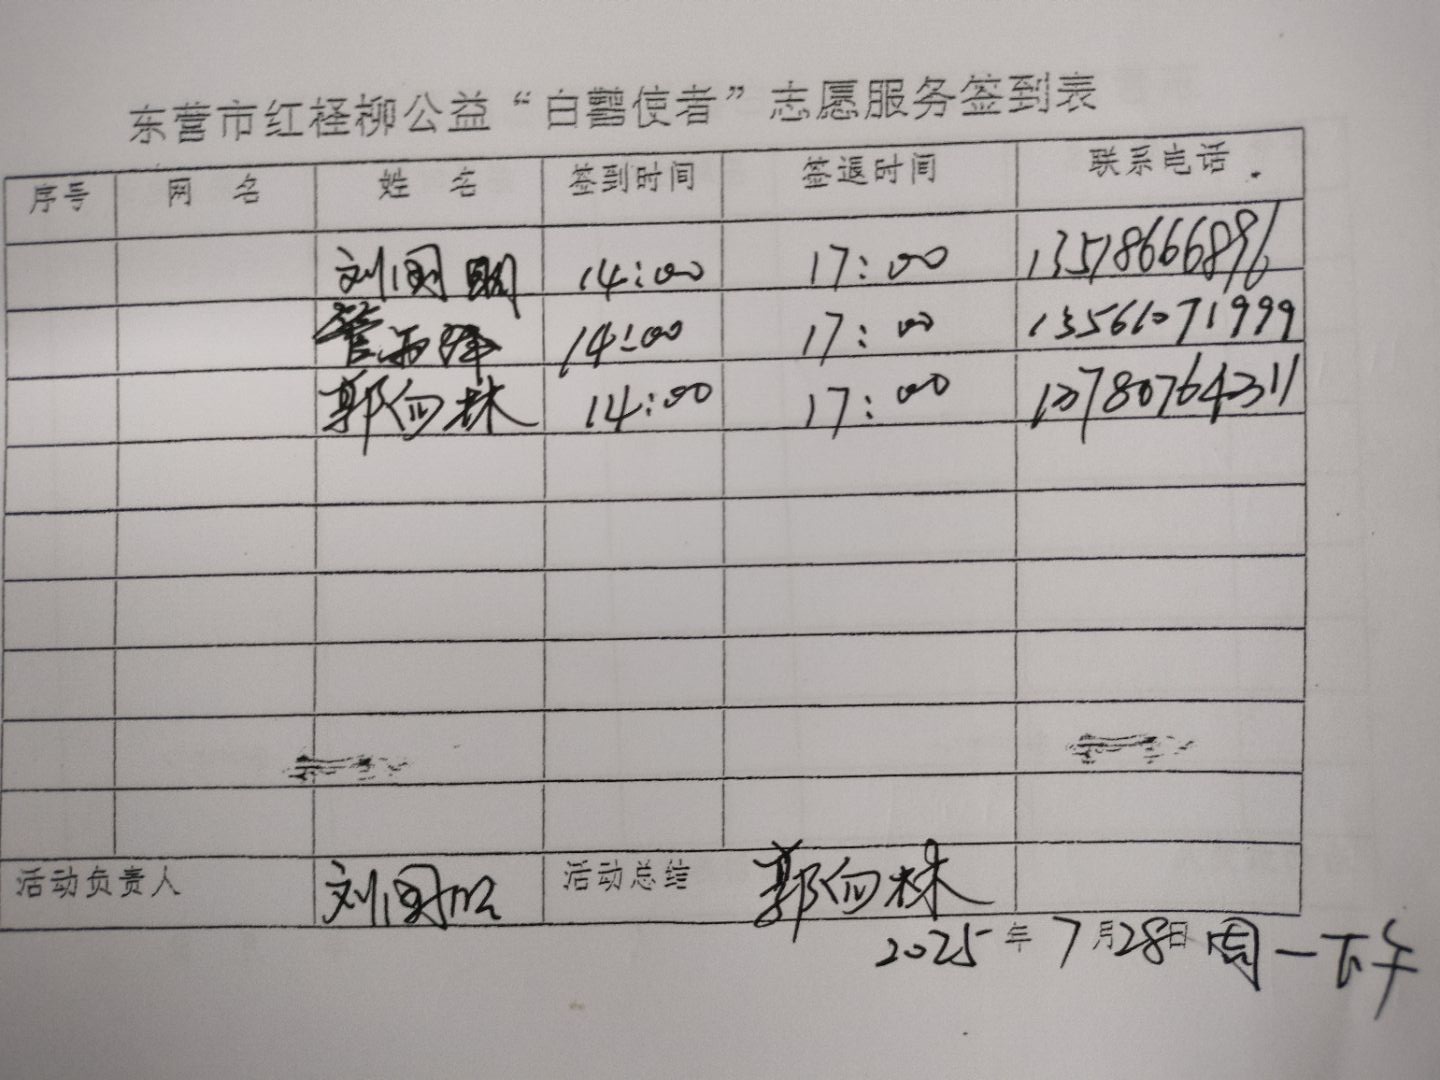 东营市红柽柳公益“白鹭使者”志愿服务签到表
序号 网 名 姓 名 签到时间 签退时间 联系电话
刘国明 14:00 17:00 13518666896
管 14:00 17:00 13561071999
郭向林 14:00 17:00 13780764311
活动负责人 刘国明 活动总结 郭向林
2025年7月28日 周一下午